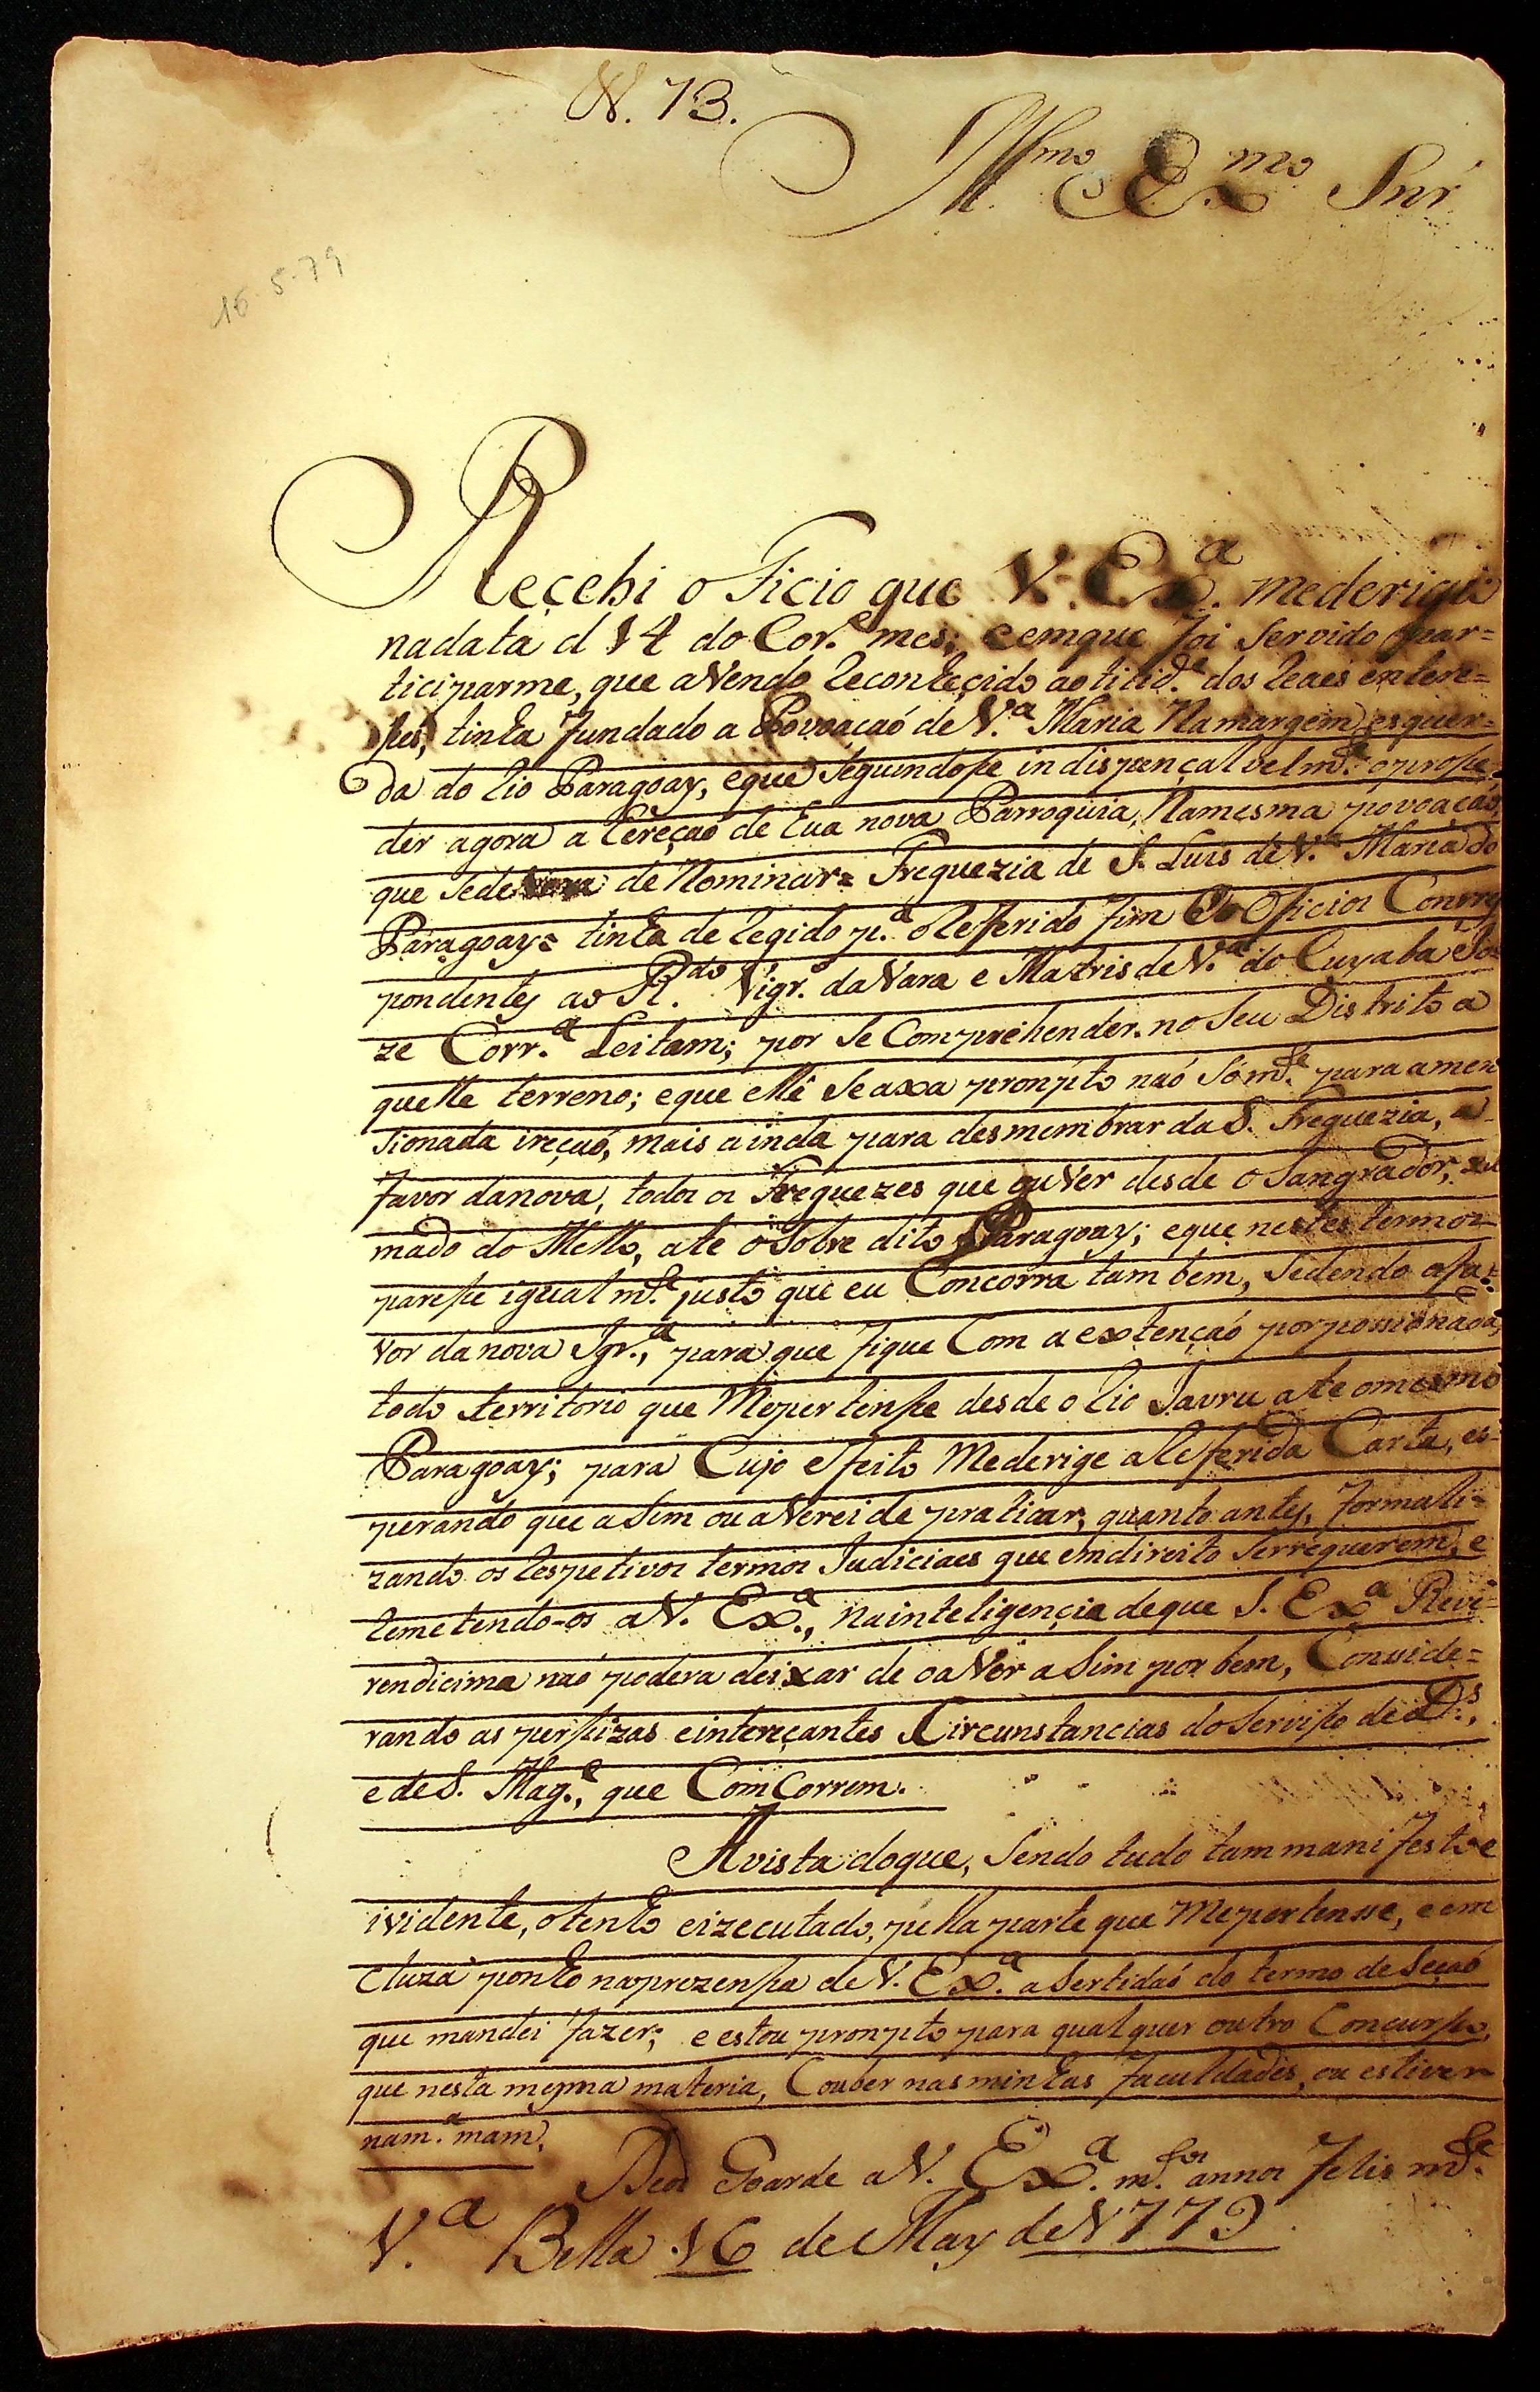 N. 13.
Illmo Exmo Snr
16-5-79
Reçebi o Ficio que V. Exa. mederigio
nadata d 14 do Corr.e mes; eemque foi servido par=
ticiparme, que avendo Reconheçido a utilid.e dos Reaes entere=
ses, tinha fundado a Povoaçaó de V.a Maria Namargem esquer=
da do Rio Paragoay, eque seguindose indispençalvelm.te oprose
der agora a Ereçaó de hua nova Parroquia, Namesma povoaçaó,
que sede de Nominar= Freguezia de S. Luis de V.a Maria do
Paragoay= tinha de Regido p.a o Refferido fim Os Oficios Corres
pondentes ao R.do Vigr.o da Vara e Matris de V.a do Cuyaba Jo=
ze Corr.a Leitam; por se Comprehender no seu Distrito a
quelle terreno; eque elle se axa pronpto naó sóm.te para amen
sionada ireçaó, mais ainda para desmembrar da S. Freguezia, a
favor danova, todos os Freguezes que ouver desde o Sangrador, xa
mado do Mello, ate o Sobre dito Paragoay; eque nestes termos
parese igualm.te justo que eu Concorra tam bem, Sedendo afa=
vor danova Igr.a, para que fique Com a extençaó porporsionada,
todo territorio que Mepertense desde o Rio Jauru ate omesmo
Paragoay; para Cujo efeito Mederige a Referida Carta, es=
perando que asim ou averei de praticar, quanto antes, formali=
zando os Respetivos termos Judiciaes que emdireito serrequerem, e
Remetendo-os aV. Exa., na inteligençia deque S. Exa Reve=
rendicima naó podera deixar de oaver asim por bem, Conside=
rando as persizas eintereçantes Circunstancias do Serviso de Ds.,
e de S. Mag.e, que Com Correm.
Avista doque, sendo tudo tam manifesto e
ividente, o tenho eizecutado, pella parte que Mepertense, eem
Cluza ponho naprezensa de V. Exa. a Sertidaó do termo de Seçaó
que mandei fazer; e estou pronpto para qualquer outro Concurso,
que nesta mesma materia, Couber nas minhas faculdades, ou estiver
nam.a mam.
Deos Goarde aV. Exa. m.tos annos Felis m.te
V.a Bella 16 de Mayo de 1779